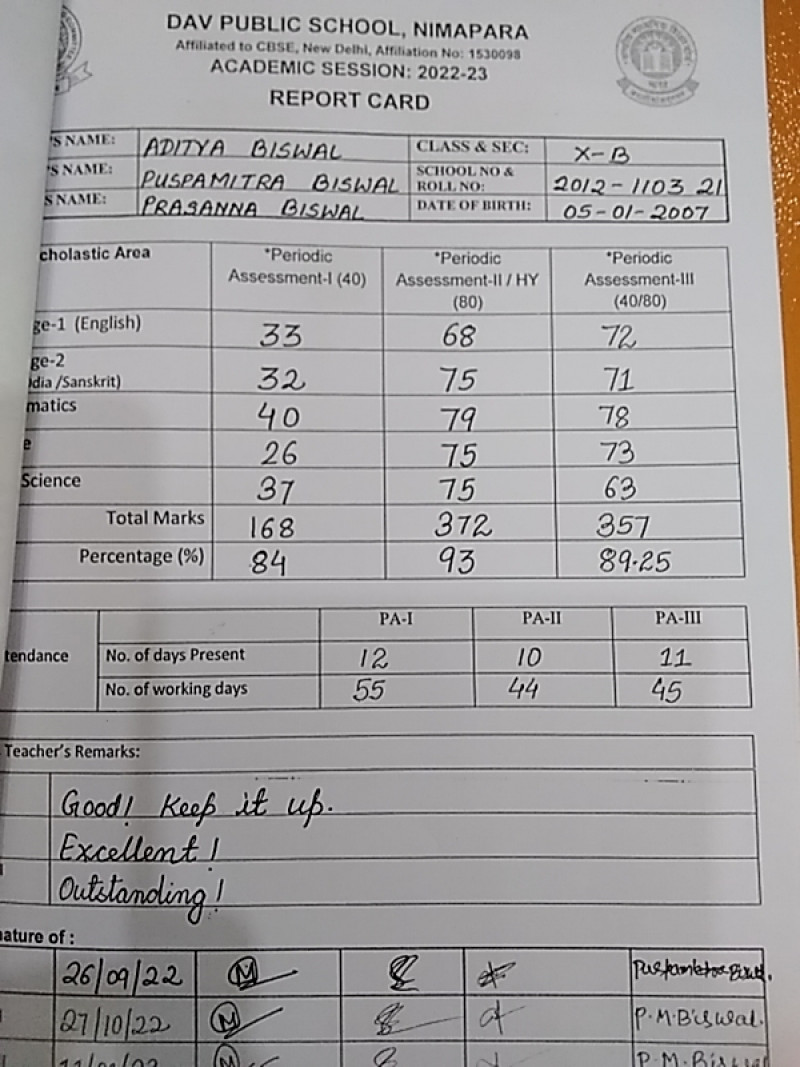 DAV PUBLIC SCHOOL, NIMAPARA
Affiliated to CBSE, New Delhi, Affiliation No: 1530098
ACADEMIC SESSION: 2022-23
REPORT CARD
'S NAME: ADITYA BISWAL CLASS & SEC: X-B
'S NAME: PUSPAMITRA BISWAL SCHOOL NO & ROLL NO: 2012-1103 21
S NAME: PRASANNA BISWAL DATE OF BIRTH: 05-01-2007
cholastic Area *Periodic Assessment-I (40) *Periodic Assessment-II / HY (80) *Periodic Assessment-III (40/80)
ge-1 (English) 33 68 72
ge-2
dia /Sanskrit) 32 75 71
matics 40 79 78
e 26 75 73
Science 37 75 63
Total Marks 168 372 357
Percentage (%) 84 93 89.25
PA-I PA-II PA-III
tendance No. of days Present 12 10 11
No. of working days 55 44 45
Teacher's Remarks:
Good! Keep it up.
Excellent!
Outstanding!
nature of :
26/09/22
27/10/22 P.M.Biswal.
P.M.Biswal